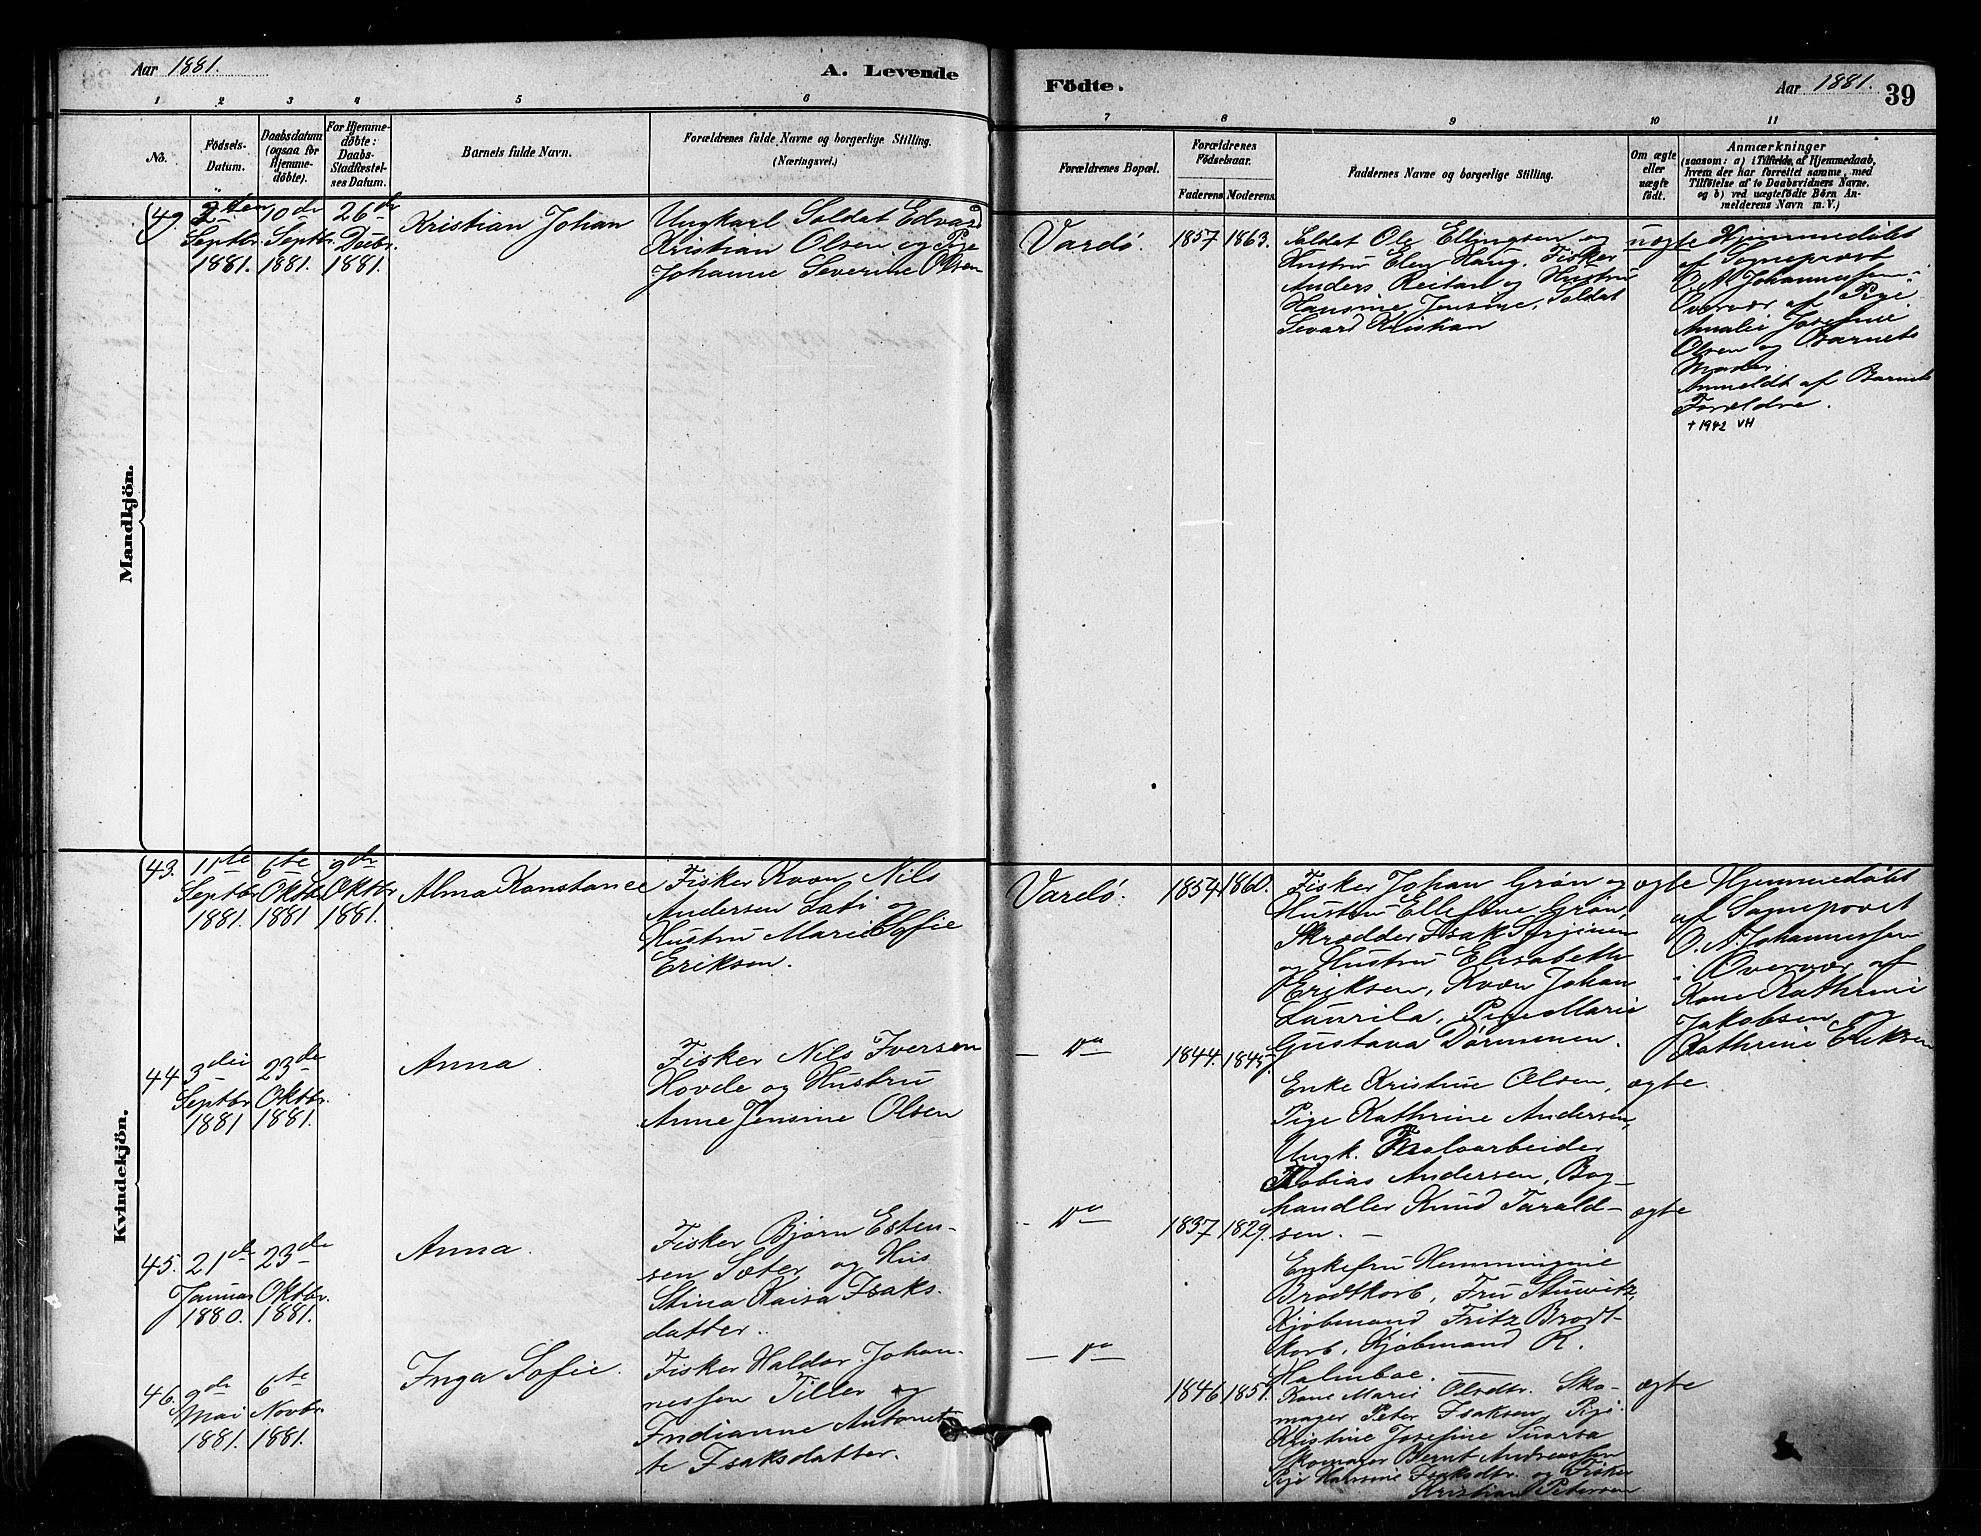 Aar 1881.
A. Levende
Födte.
Aar 1881.
39
1 2 3 4 5 6 7 8 9 10 11
No.
Födsels-Datum.
Daabsdatum (ogsaa for Hjemmedöbte).
For Hjemmedöbte: Daabs-Stadfæstelses Datum.
Barnets fulde Navn.
Forældrenes fulde Navne og borgerlige Stilling. (Næringsvei.)
Forældrenes Bopæl.
Forældrenes Födselsaar.
Faderens
Moderens
Faddernes Navne og borgerlige Stilling.
Om ægte eller uægte födt.
Anmærkninger
(saasom: a) i Tilfælde af Hjemmedaab,
hvem der har forrettet samme, med
Tilföielse af to Daabsvidners Navne.
og b) ved uægtefödte Börn An-
melderens Navn m. V.)
Mandkjön.
49
2den Septbr. 1881.
10de Septbr. 1881.
26de Decbr. 1881.
Kristian Johan
Ungkarl Soldat Edvard
Kristian Olsen og Pige
Johanne Severine Olsen
Vardö.
1857
1863.
Soldat Ole Ellingsen og
Hustru Elen Haug. Fisker
Anders Reitan og Hustru
Hansine Jensine, Soldat
Sevard Kristian
uægte
Hjemmedöbt
af Sogneprest
O. N. Johannessen i
Overvær af Pige
Amalie Josefine
Olsen og Barnets
Moder.
Anmeldt af Barnets
Forældre.
† 1942 VH
Kvindekjön.
43.
11te Septbr. 1881.
6te Oktbr. 1881
9de Oktbr. 1881.
Alma Konstance
Fisker Kvæn Nils
Andersen Lati og
Hustru Marie Sofie
Eriksen.
Vardö.
1854
1860.
Fisker Johan Grön og
Hustru Ellefine Grön,
Skrædder Isak
og Hustru Elisabeth
Eriksen, Kvæn Johan
Laurila, Pige Marie
Gustava
ægte
Hjemmedöbt
af Sogneprest
O. N. Johannessen
i Overvær af
Kone Kathrine
Jakobsen og
Kathrine Eriksen
44
3die Septbr 1881
23de Oktbr. 1881.
Anna
Fisker Nils Iversen
Hovde og Hustru
Anne Jensine Olsen
— Do —
1844.
1845
Enke Kristine Olsen,
Pige Kathrine Andersen,
Ungk.
Tobias Andersen, Bog-
handler Knud Tarald-
sen. —
ægte.
45.
21de Januar 1880.
23de Oktbr. 1881.
Anna.
Fisker Björn Esten-
sen Sæter og Hus
Stina Kaisa Isaks-
datter.
— Do —
1837
1829.
Enkefru Hemmingine
Brodtkorb, Fru Stuwitz
Kjöbmand Fritz Brodt-
korb, Kjöbmand R.
Holmboe.
ægte
46.
9de Mai 1881.
6te Novbr. 1881.
Inga Sofie.
Fisker Haldor Johan-
nessen Tiller og
Indianne Antonet-
te Isaksdatter.
— Do —
1846
1857.
Kone Marie Olsdtr. Sko-
mager Peter Isaksen Pige
Kristine Josefine
Skomager Bernt Andreassen
Pige Hansine Isaksdtr. og Fisker
Kristian Petersen
ægte